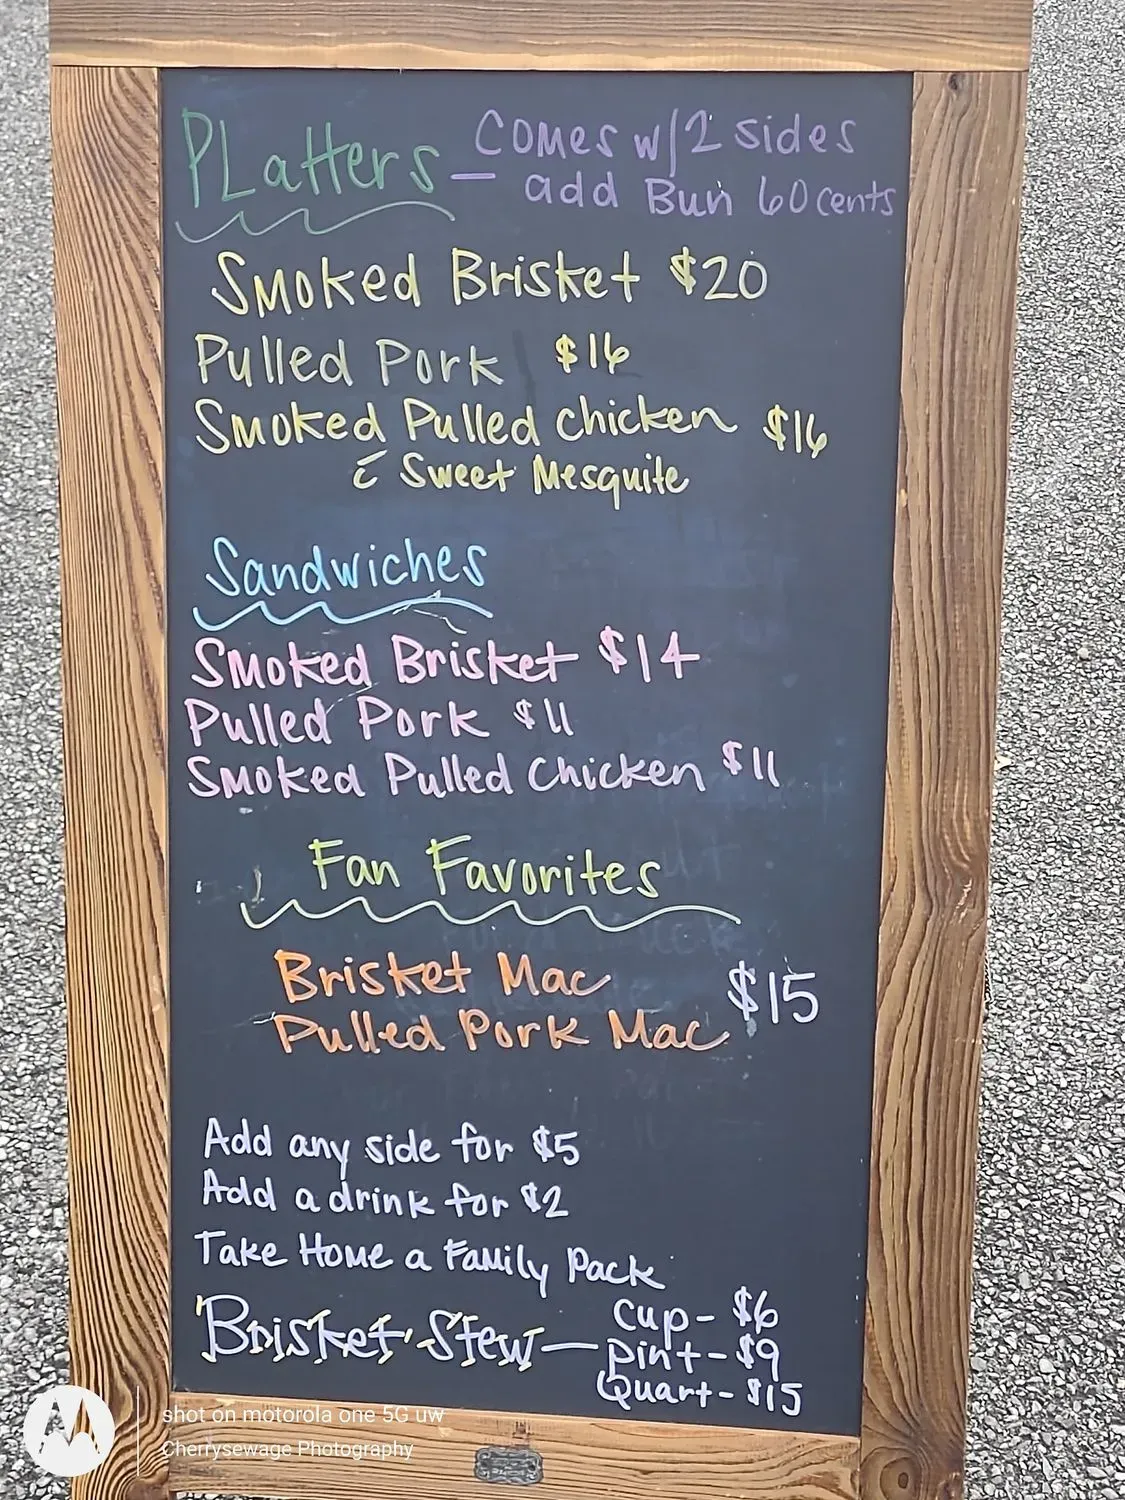 PLatters - comes w/2 sides
add Bun 60 cents
Smoked Brisket $20
Pulled Pork $16
Smoked Pulled chicken $16
c̄ Sweet Mesquite
Sandwiches
Smoked Brisket $14
Pulled Pork $11
Smoked Pulled Chicken $11
Fan Favorites
Brisket Mac
$15
Pulled Pork Mac
Add any side for $5
Add a drink for $2
Take Home a Family Pack
Brisket Stew - Cup - $6
pint - $9
Quart - $15
shot on motorola one 5G uw
Cherrysewage Photography